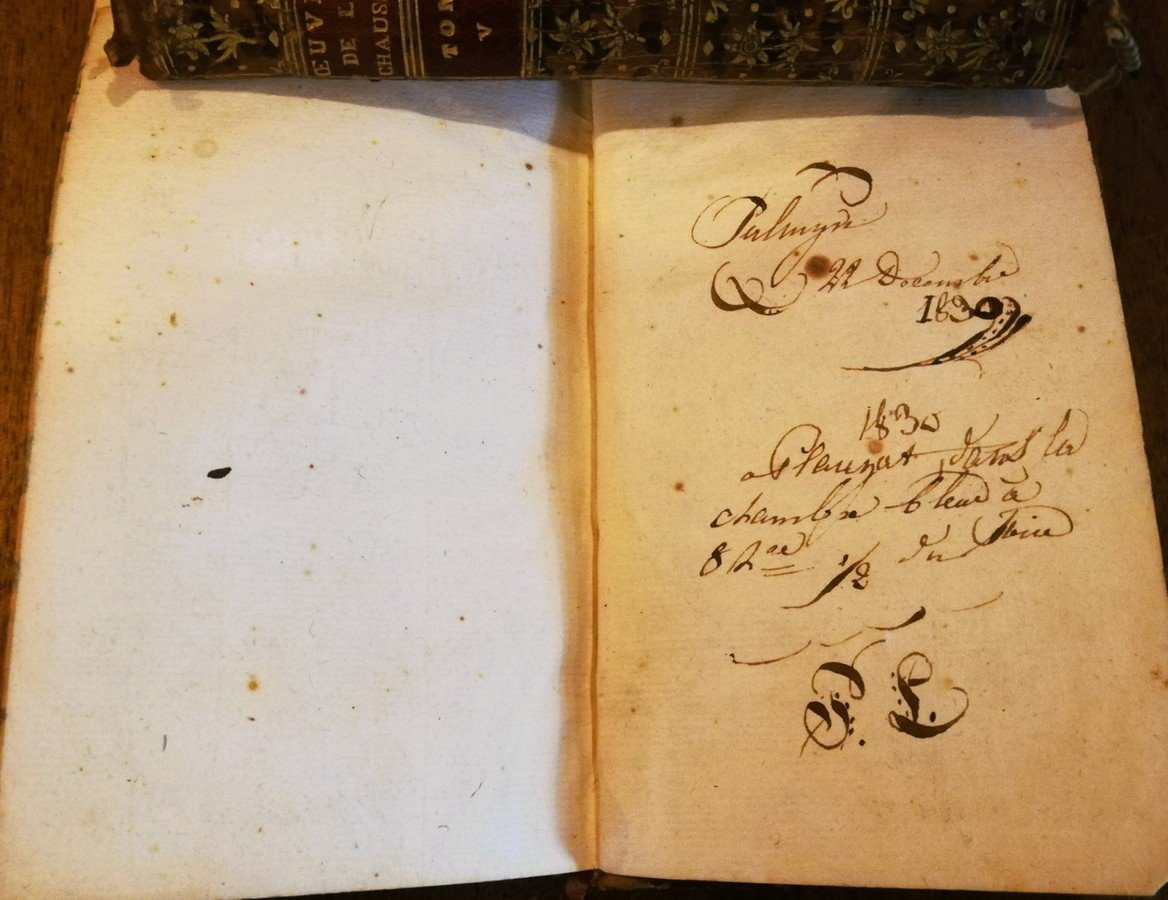 ŒUV
DE L
CHAUS
TOM
V
Palmyre
22 Decembre
1830
1830
a Plauzat dans la
chambre bleue à
8 h re 1/2 du Soire
F. L.